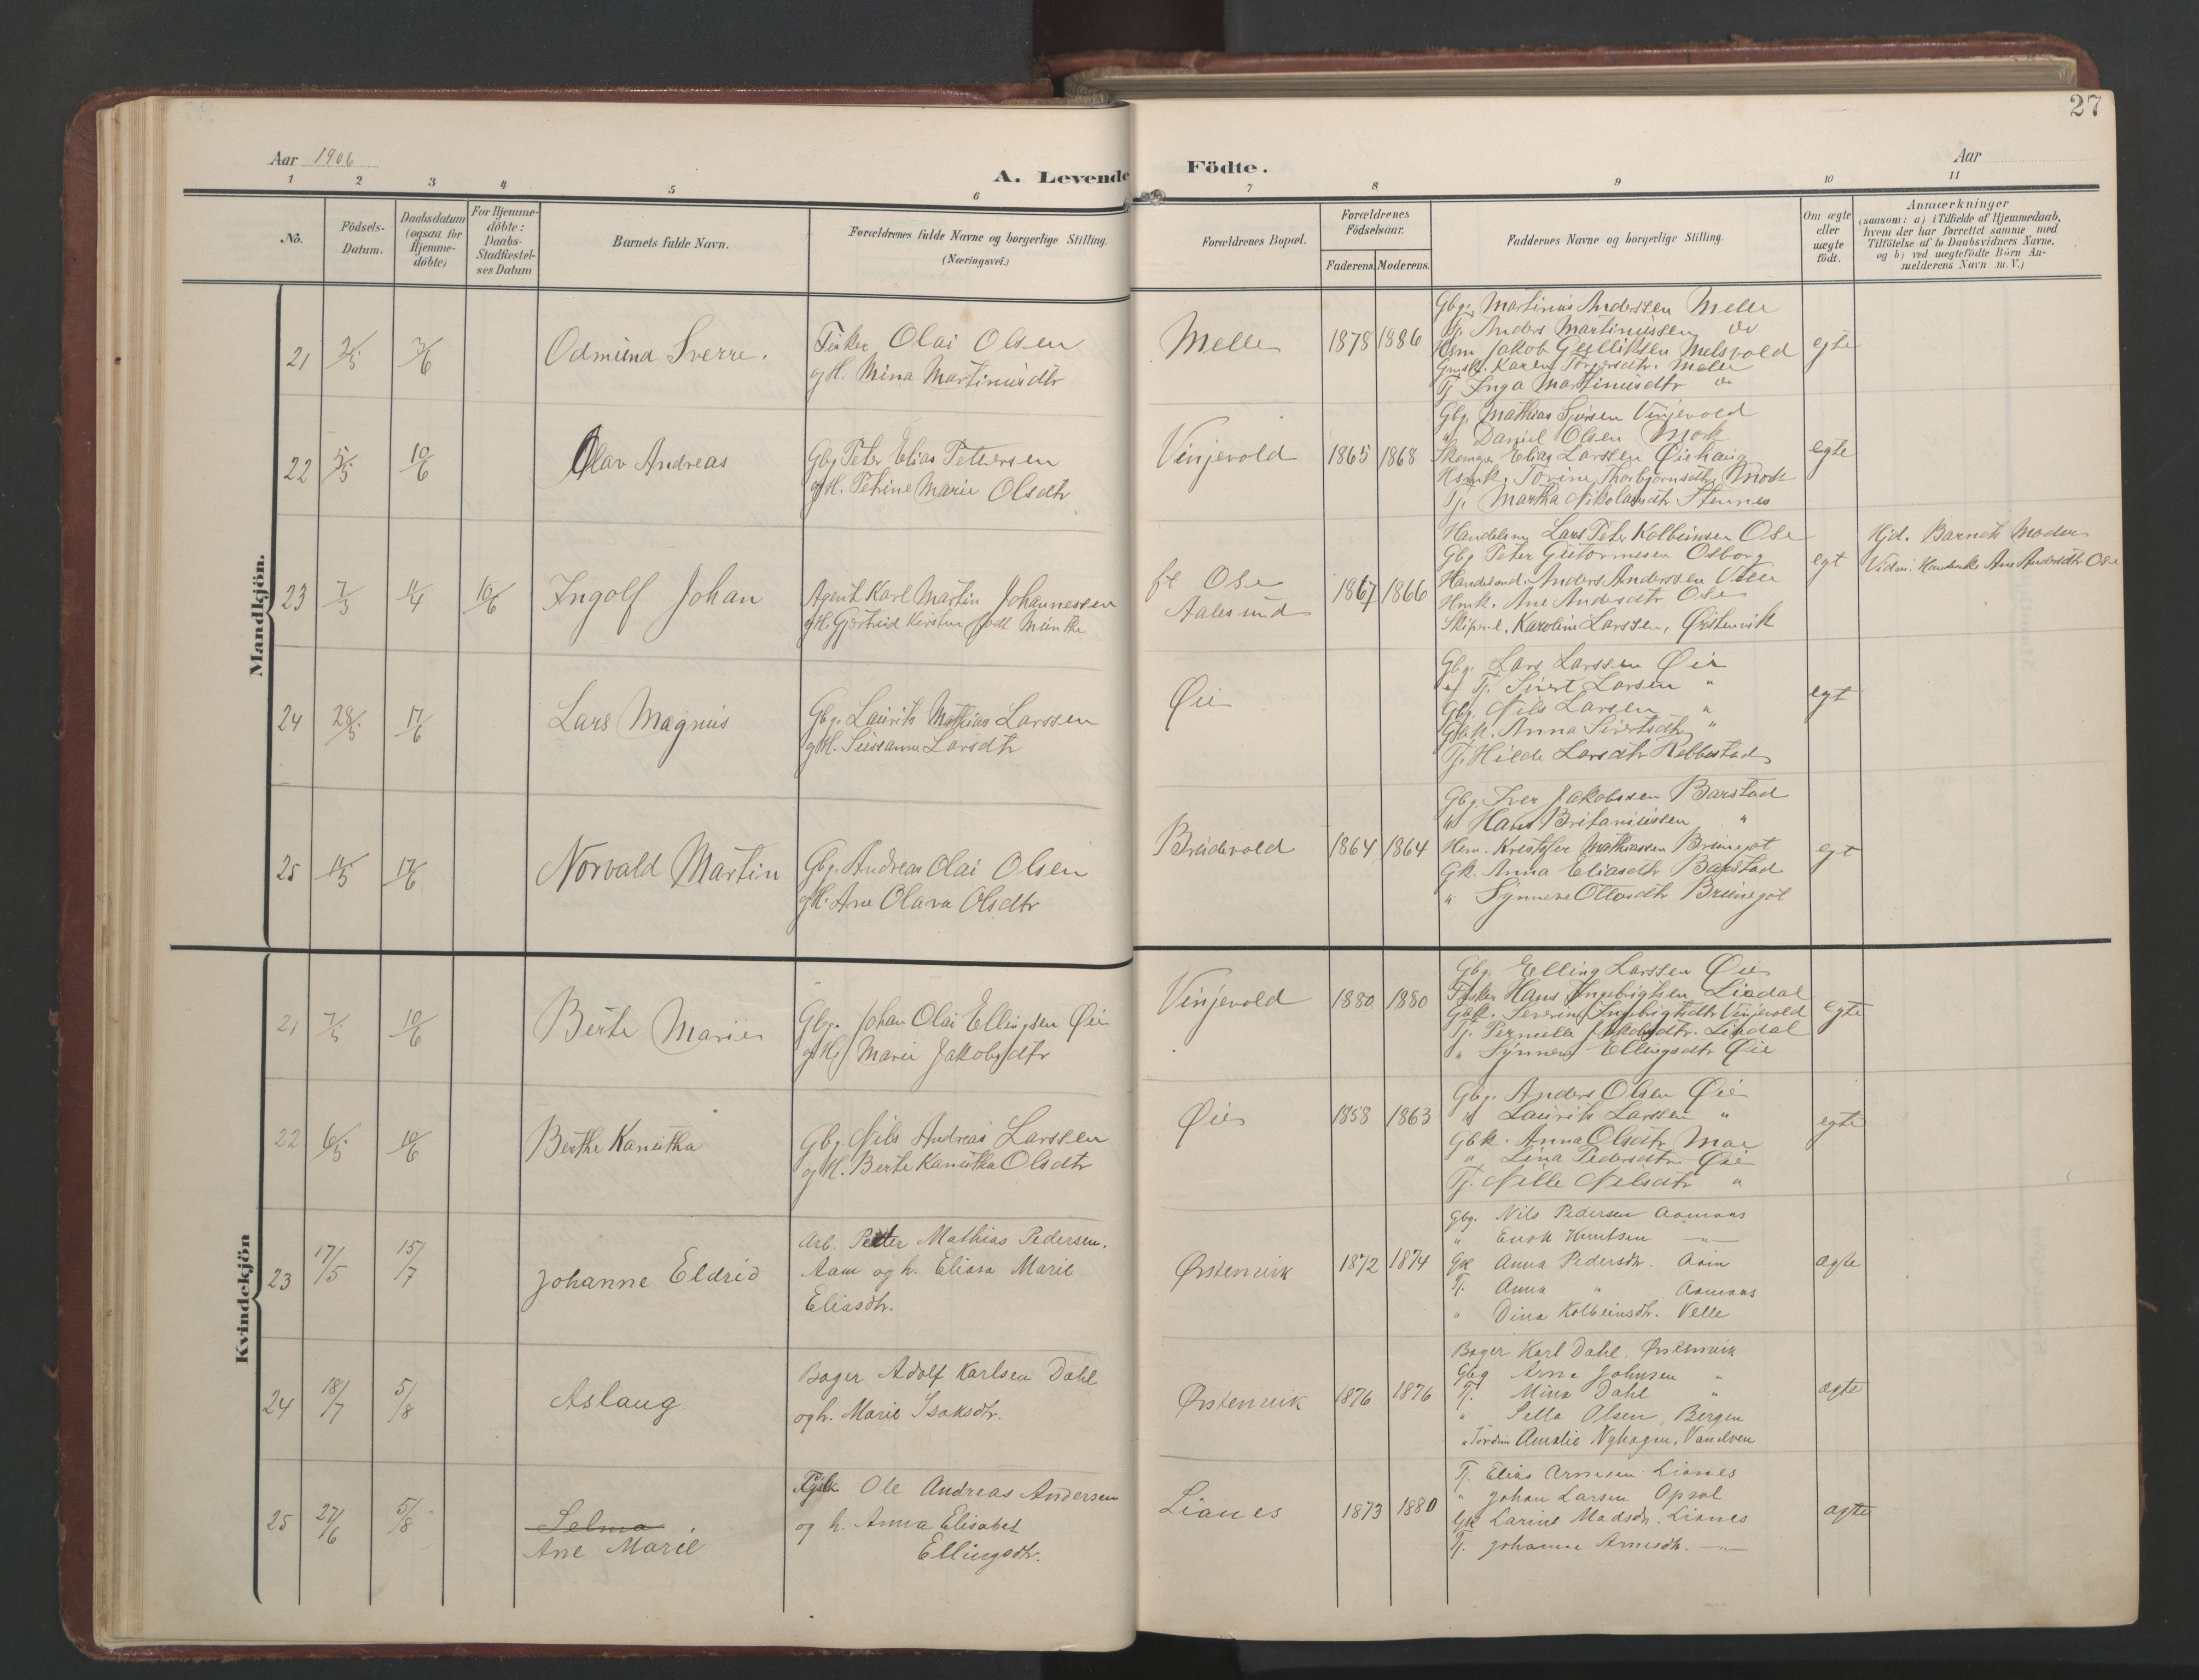 27
Aar 1906
Aar
A. Levende Födte.
1 2 3 4 5 6 7 8 9 10 11
No.
Födsels-
Datum.
Daabsdatum
(ogsaa for
Hjemme-
döbte)
For Hjemme-
döbte:
Daabs-
Stadfæstel-
ses Datum
Barnets fulde Navn.
Forældrenes fulde Navne og borgerlige Stilling.
(Næringsvei.)
Forældrenes Bopæl.
Forældrenes
Födselsaar.
Faderens. Moderens.
Faddernes Navne og borgerlige Stilling.
Om ægte
eller
uægte
födt.
Anmærkninger
(saasom: a) i Tilfælde af Hjemmedaab,
hvem der har forrettet samme, med
Tilföielse af to Daabsvidners Navne.
og b) ved uægtefödte Börn An-
melderens Navn m. V.)
Mandkjön.
21 2/5 3/6 Odmund Sverre.
Fisker Olai Olsen
og H. Mina Martinusdtr
Melle 1878 1886
Gbr. Martinus Anderssen Melle
Tj. Anders Martinussen do
Hsm Jakob Gjelliksen Melsvold
Karen Torgersdtr. Melle
Tj Inga Martinusdtr do
egte
22 5/5 10/6 Olav Andreas
Gbg Peter Elias Petersen
og H. Petrine Marie Olsdtr
Vinjevold 1865 1868
Gbg. Mathias Sjursen Vinjevold
" Daniel Olsen Mork
Skomager Elias Larssen Øiehaug
Hsmk. Torine Thorbjørnsdtr Mork
Tj. Martha Nikolaisdtr Steinnes
egte
23 7/3 11/4 10/6 Ingolf Johan
Agent Karl Martin Johannessen
og H. Gjertrud Kirstine født Munthe
ft Ose
Aalesund
1867 1866
Handelsm Lars Peter Kolbeinsen Ose
Gbg Peter Guttormesen Osborg
Handelsmd. Anders Anderssen Velle
Hmk. Ane Andersdtr Ose
Skipperk. Karoline Larssen, Ørstenvik
egt
Hjd. Barnets Moder
Vidni: Handelmk. Ane Andersdtr Ose
24 28/5 17/6 Lars Magnus
Gbg. Laurits Mathias Larssen
og H. Sussanne Larsdtr
Øie
Gbg. Lars Larssen Øie
Tj. Sivert Larsen "
Gbg. Nils Larsen "
Gbk. Anna Sivertsdtr "
Tj. Hilda Larsdtr Rebbestad
egt
25 11/5 17/6 Norvald Martin
Gbg. Andreas Olai Olsen
og H. Ane Olava Olsdtr
Breidevold 1864 1864
Gbg. Iver Jakobssen Barstad
" Hans Britaniussen "
Hsm. Kristofer Mathiassen Brunegot
Gk. Anna Eliasdtr Barstad
" Synnøve Ottosdtr Brunegot
egt
Kvindekjön
21 7/5 10/6 Berte Marie
Gbg. Johan Olai Ellingsen Øie
og H. Marie Jakobsdtr
Vinjevold 1880 1880
Gbg. Elling Larssen Øie
Fisker Hans Ingebrigtsen Liadal
Gbk. Severine Ingebrigtsdtr Vinjevold
Tj. Pernille Jakobsdtr. Liadal
" Synnøve Ellingsdtr Øie
egte
22 6/5 10/6 Berthe Kanutha
Gbg Nils Andreas Larssen
og H. Berte Kanutha Olsdtr
Øie 1858 1863
Gbg. Anders Olsen Øie
" Laurits Larssen "
Gbk. Anna Olsdtr Moe
" Lina Pedersdtr Øie
Tj. Nille Nilsdtr "
egte
23 17/5 15/7 Johanne Eldrid
Arb. Petter Mathias Pedersen.
Aam og h. Elissa Marie
Eliasdtr.
Ørstenvik 1872 1874
Gbg. Nils Pedersen Aamaas
" Enok Knutsen —"—
Gk Anna Pedersdtr. Aam
Tj. Anna " Aamaas
" Dina Kolbeinsdtr. Velle
ægte
24 18/7 5/8 Aslaug
Bager Adolf Karlsen Dahl
og h. Marie Isaksdtr.
Ørstenvik 1876 1876
Bager Karl Dahl, Ørstenvik
Gbg Arne Johnsen "
Tj. Mina Dahl "
" Sella Olsen, Bergen
" Amalie Nyhagen, Vandven
ægte
25 27/6 5/8 Selma
Ane Marie
Ole Andreas Andersen
og h. Anna Elisabet
Ellingsdtr.
Lianes 1873 1880
Tj. Elias Arnesen Lianes
" Johan Larsen Opsal
Gk Larine Madsdtr. Lianes
Tj. Johanne Arnesdtr. —"—
ægte